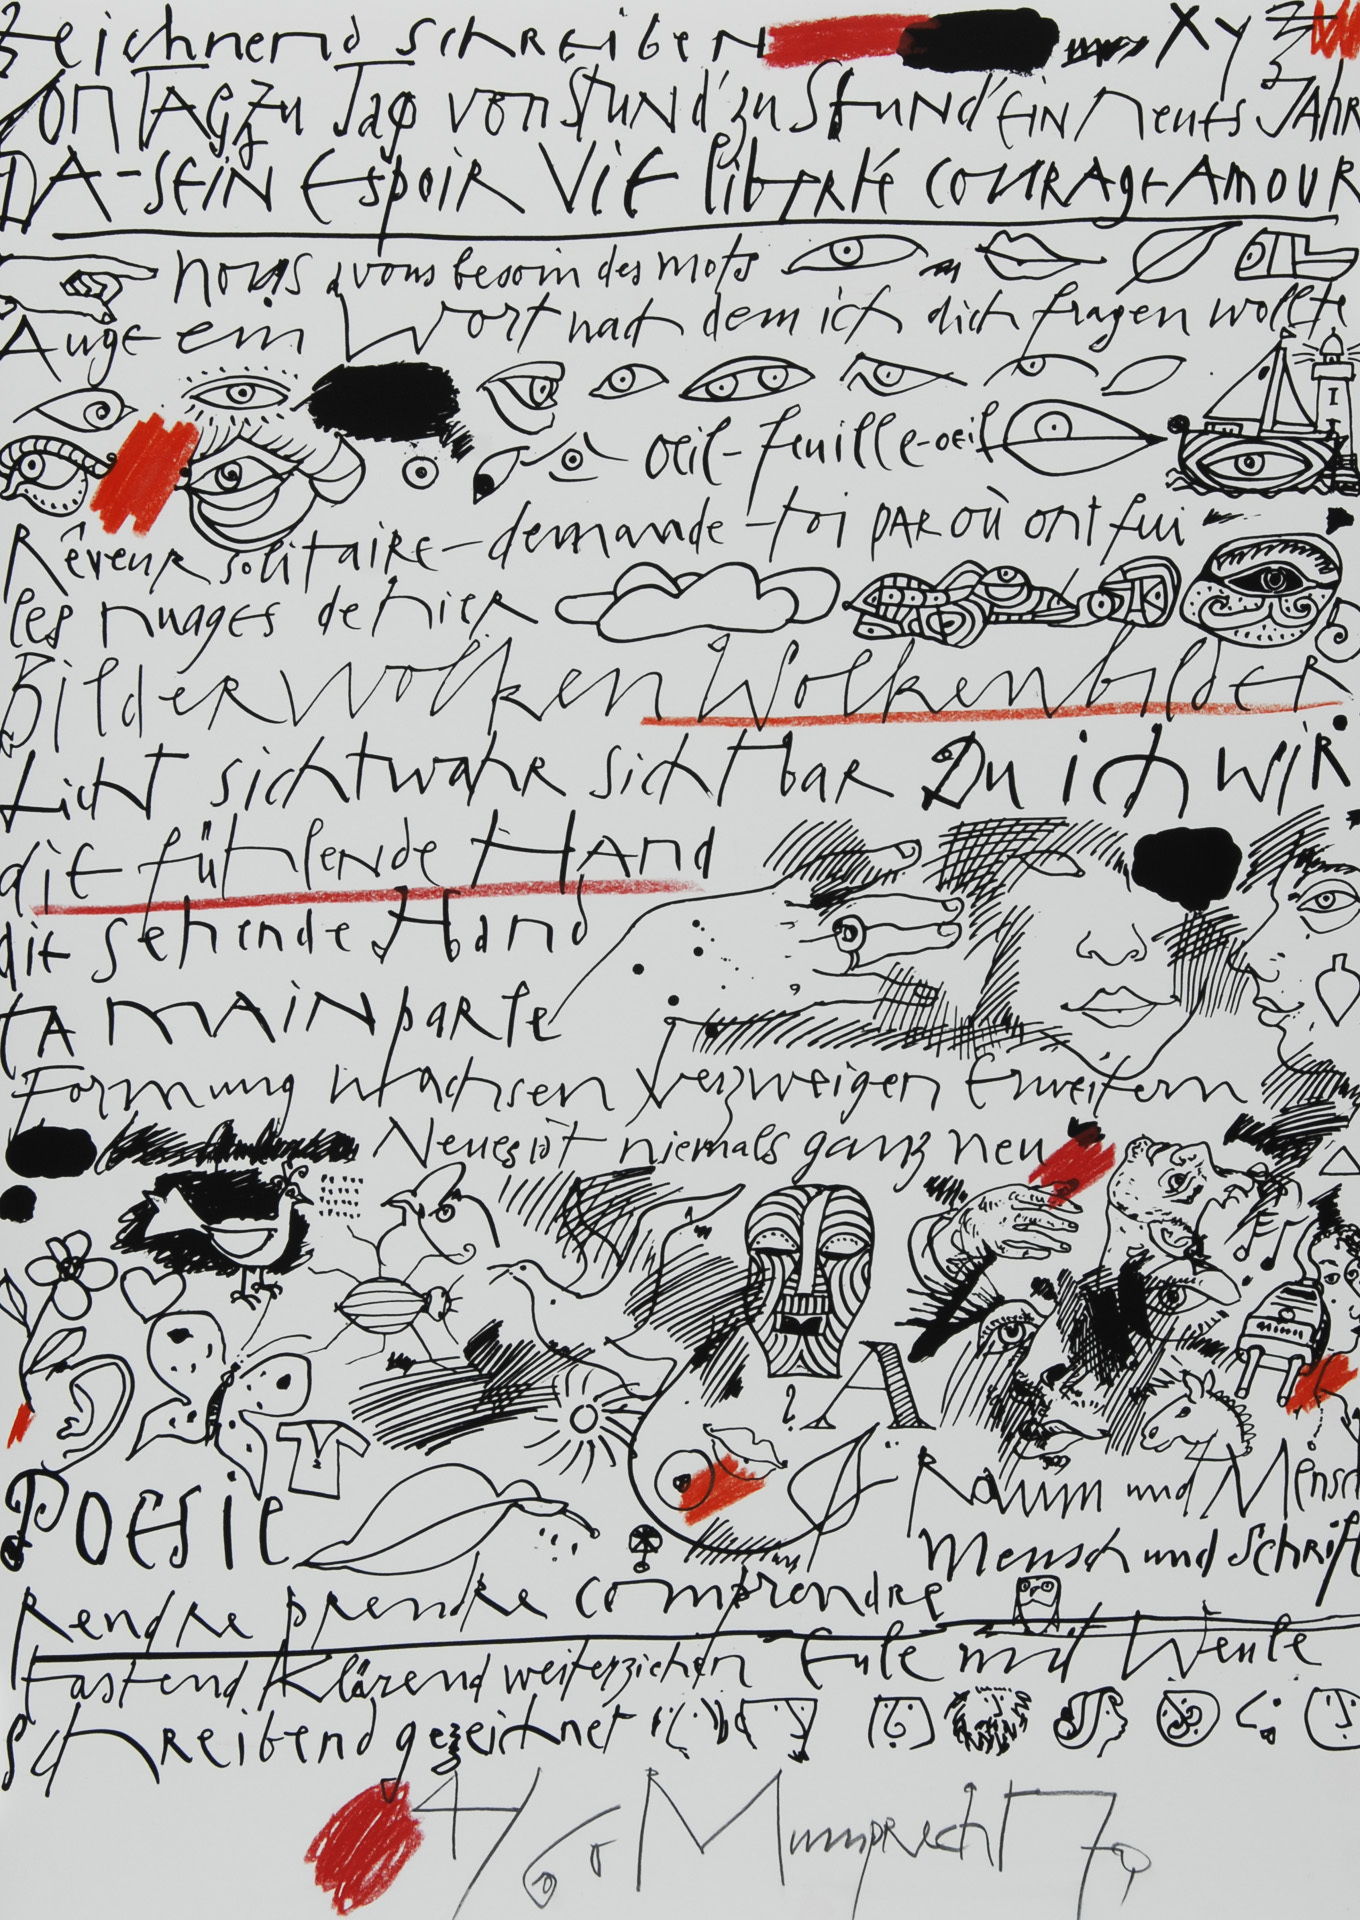 zeichnend schreiben XYZ
Von Tag zu Tag von Stund' zu Stund' Ein neues Jahr
DA-SEIN Espoir ViE libErté couRAgE AmouR
nous avons besoin des mots
Auge ein Wort nach dem ich dich fragen wollte
oeil-feuille-oeil
Rêveur solitaire-demande-toi PAR Où ont fui
les nuages de hier
Bilder Wolken Wolkenbilder
Licht sichtwahr sichtbar Du ich wir
die fühlende Hand
die sehende Hand
TA MAiN parle
Formung Wachsen Verzweigen Erweitern
Neues ist niemals ganz neu
?
A
Poesie
Raum und Mensch
Mensch und Schrift
Rendre prendre comprendre
Tastend Klärend weiterziehen Eule mit Weule
Schreibend gezeichnet
4/60 Mumprecht 79